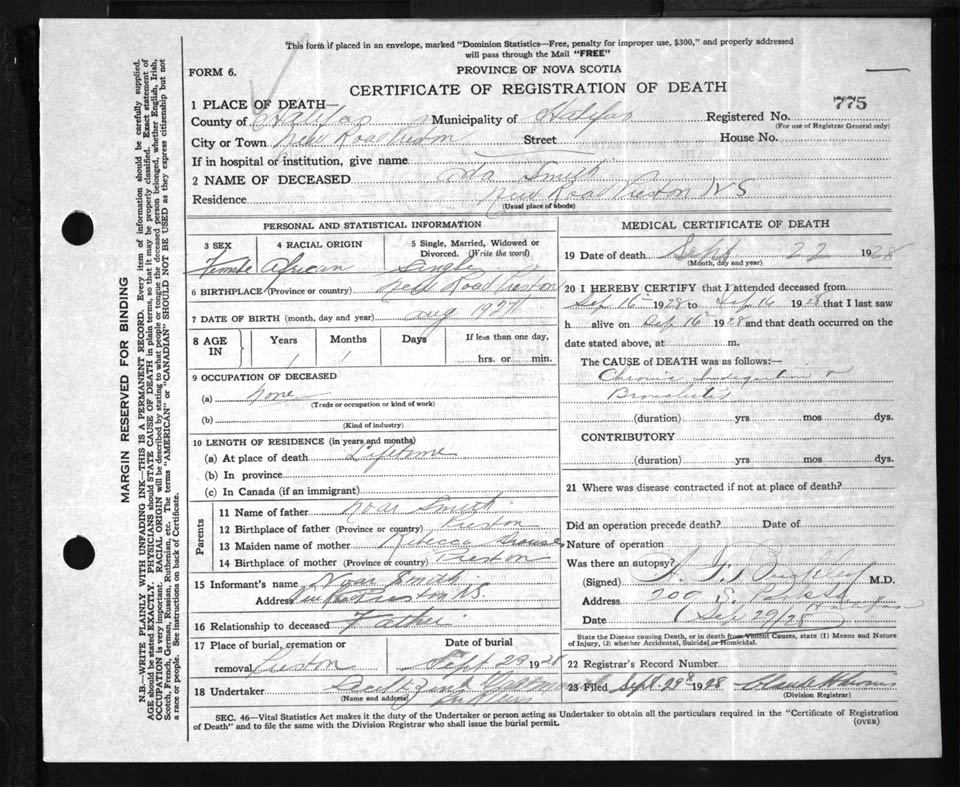 This form if placed in an envelope, marked "Dominion Statistics—Free, penalty for improper use, $300," and properly addressed
will pass through the Mail "FREE"
FORM 6.
PROVINCE OF NOVA SCOTIA
CERTIFICATE OF REGISTRATION OF DEATH
775
1 PLACE OF DEATH—
County of Halifax Municipality of Halifax Registered No.
(For use of Registrar General only)
City or Town New Road Preston Street House No.
If in hospital or institution, give name
2 NAME OF DECEASED Ada Smith
Residence New Road Preston N S
(Usual place of abode)
PERSONAL AND STATISTICAL INFORMATION
3 SEX 4 RACIAL ORIGIN 5 Single, Married, Widowed or
Divorced. (Write the word)
Female African Single
6 BIRTHPLACE (Province or country) New Road Preston
7 DATE OF BIRTH (month, day and year) Aug 1927
8 AGE IN Years Months Days If less than one day,
1 1 hrs. or min.
9 OCCUPATION OF DECEASED
(a) None
(Trade or occupation or kind of work)
(b)
(Kind of industry)
10 LENGTH OF RESIDENCE (in years and months)
(a) At place of death Lifetime
(b) In province
(c) In Canada (if an immigrant)
Parents
11 Name of father Noar Smith
12 Birthplace of father (Province or country) Preston
13 Maiden name of mother Rebecca
14 Birthplace of mother (Province or country) Preston
15 Informant's name Noar Smith
Address New Road Preston N.S.
16 Relationship to deceased Father
17 Place of burial, cremation or Date of burial
removal Preston Sept 23 1928
18 Undertaker
(Name and address)
MEDICAL CERTIFICATE OF DEATH
19 Date of death Sept 22 1928
(Month, day and year)
20 I HEREBY CERTIFY that I attended deceased from
Sep 16 1928 to Sep 16 1928 that I last saw
h alive on Sep 16 1928 and that death occurred on the
date stated above, at m.
The CAUSE OF DEATH was as follows:—
Chronic Indigestion &
Bronchitis
(duration) yrs mos dys.
CONTRIBUTORY
(duration) yrs mos dys.
21 Where was disease contracted if not at place of death?
Did an operation precede death? Date of
Nature of operation
Was there an autopsy?
(Signed) M.D.
Address 200
Date Sep 29/28
State the Disease causing Death, or in death from Violent Causes, state (1) Means and Nature
of Injury, (2) whether Accidental, Suicidal or Homicidal.
22 Registrar's Record Number
23 Filed Sept 29th 1928
(Division Registrar)
SEC. 46—Vital Statistics Act makes it the duty of the Undertaker or person acting as Undertaker to obtain all the particulars required in the "Certificate of Registration
of Death" and to file the same with the Division Registrar who shall issue the burial permit.
(OVER)
MARGIN RESERVED FOR BINDING
N.B.—WRITE PLAINLY WITH UNFADING INK—THIS IS A PERMANENT RECORD. Every item of information should be carefully supplied.
AGE should be stated EXACTLY. PHYSICIANS should STATE CAUSE OF DEATH in plain terms, so that it may be properly classified. Exact statement of
OCCUPATION is very important. RACIAL ORIGIN will be described by stating to what people or tongue the deceased person belonged, whether English, Irish,
Scotch, French, German, Russian, Ruthenian, etc. The terms "AMERICAN" or "CANADIAN" SHOULD NOT BE USED as they express citizenship but not
a race or people. See instructions on back of Certificate.